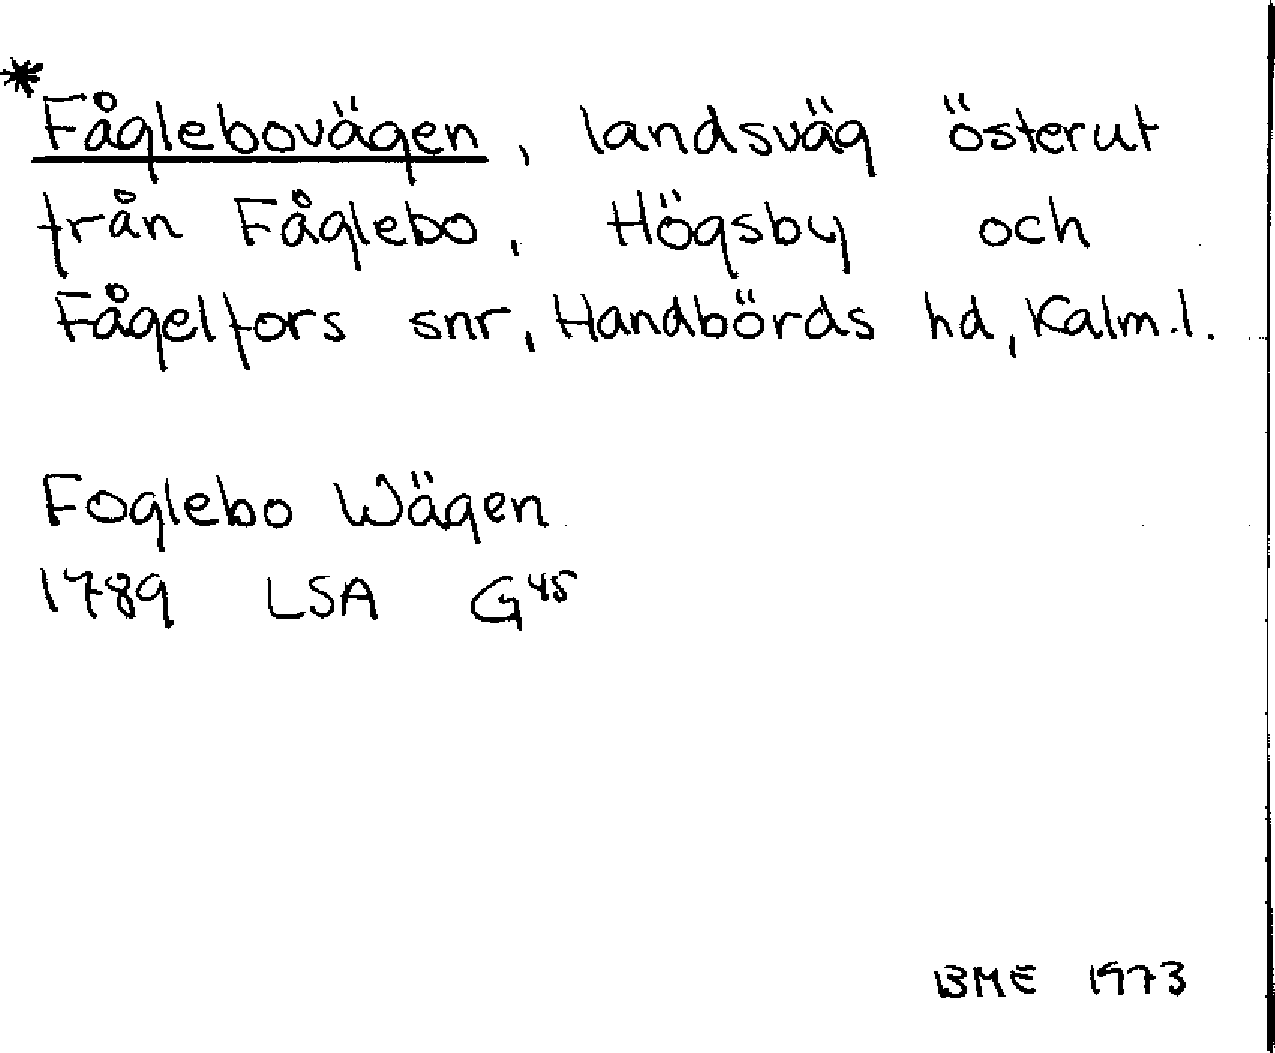 *Fåglebovägen, landsväg österut
från Fåglebo, Högsby och
Fågelfors snr, Handbörds hd, Kalm.l.
Foglebo Wägen
1789 LSA G45
BME 1973